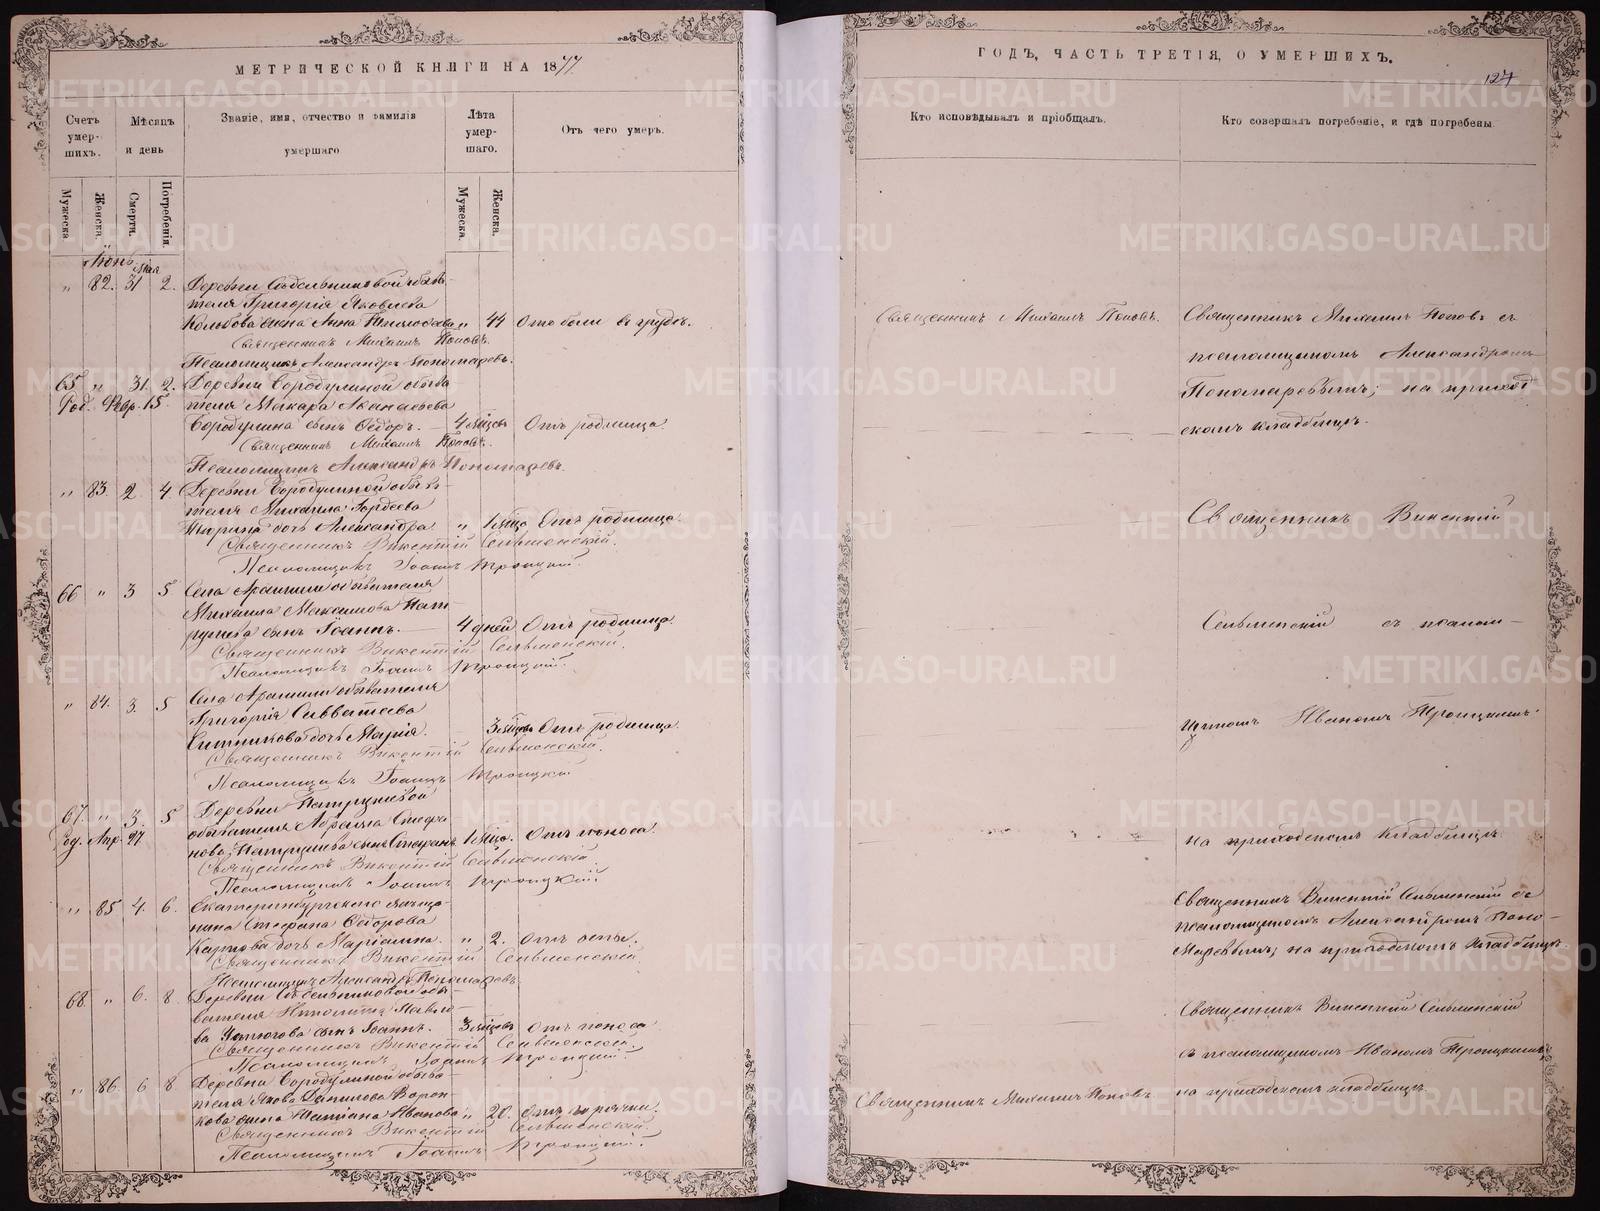 МЕТРИЧЕСКОЙ КНИГИ НА 1877
Счетъ умер-шихъ.
Мѣсяцъ и день
Званіе, имя, отчество и фамилія умершаго
Лѣта умер-шаго.
Отъ чего умеръ.
Мужеска
Женска.
Смерти.
Погребенія.
Мужеска.
Женска.
Іюнь
Мая
„ 82. 31 2. Деревни
теля Григорія Яковлева
жена Анна „ 44 Отъ боли въ груди.
Священникъ Михаилъ Поповъ.
Псаломщикъ Александръ Пономаревъ.
65 „ 31. 2. Деревни Бородулиной обыва-
Род. Февр. 15. теля Макара Аѳанасьева
Бородулина сынъ Ѳедоръ. 4 мѣсяцовъ Отъ родимца.
Священникъ Михаилъ Поповъ.
Псаломщикъ Александръ Пономаревъ.
„ 83. 2 4. Деревни Бородулиной обыва-
теля Михаила Гордеева
дочь Александра. „ Отъ родимца.
Священникъ Викентій
Псаломщикъ Іоаннъ Троицкій.
66 „ 3 5 Села Арамили обывателя
Михаила Максимова Пат-
рушева сынъ Іоаннъ. 4 дней Отъ родимца.
Священникъ Викентій
Псаломщикъ Іоаннъ Троицкій.
„ 84. 3. 5 Села Арамили обывателя
Григорія Савватеева
Ситникова дочь Марія. Отъ родимца.
Священникъ Викентій
Псаломщикъ Іоаннъ Троицкій
67. „ 3. 5 Деревни Патрушевой
Род. Апр. 27. обывателя Абрама Стефа-
нова Патрушева сынъ Стефанъ Отъ поноса.
Священникъ Викентій
Псаломщикъ Іоаннъ Троицкій.
„ 85 4. 6. Екатеринбургскаго мѣща-
нина Стефана Ѳедорова
дочь Маріамна. „ 2. Отъ оспы.
Священникъ Викентій
Псаломщикъ Александръ Пономаревъ.
68. „ 6. 8. Деревни обы-
вателя Ипполита Павло-
ва сынъ Іоаннъ. 3 мѣсяцовъ Отъ поноса
Священникъ Викентій
Псаломщикъ Іоаннъ Троицкій.
„ 86. 6 8 Деревни Бородулиной обыва-
теля Якова Данилова Ворон-
кова жена Татіана Иванова „ 20. Отъ горячки.
Священникъ Викентій
Псаломщикъ Іоаннъ Троицкій.
ГОДЪ, ЧАСТЬ ТРЕТІЯ, О УМЕРШИХЪ.
127
Кто исповѣдывалъ и пріобщалъ.
Кто совершалъ погребеніе, и гдѣ погребены.
Священникъ Михаилъ Поповъ.
Священникъ Михаилъ Поповъ съ
псаломщикомъ Александромъ
Пономаревымъ; на приход
скомъ кладбищѣ.
Священникъ Викентій
съ псалом-
щикомъ Иваномъ Троицкимъ
на приходскомъ кладбищѣ
Священникъ Викентій съ
псаломщикомъ Александромъ Поно-
маревымъ; на приходскомъ кладбищѣ
Священникъ Викентій
съ псаломщикомъ Иваномъ Троицкимъ
Священникъ Михаилъ Поповъ
на приходскомъ кладбищѣ
METRIKI.GASO-URAL.RU